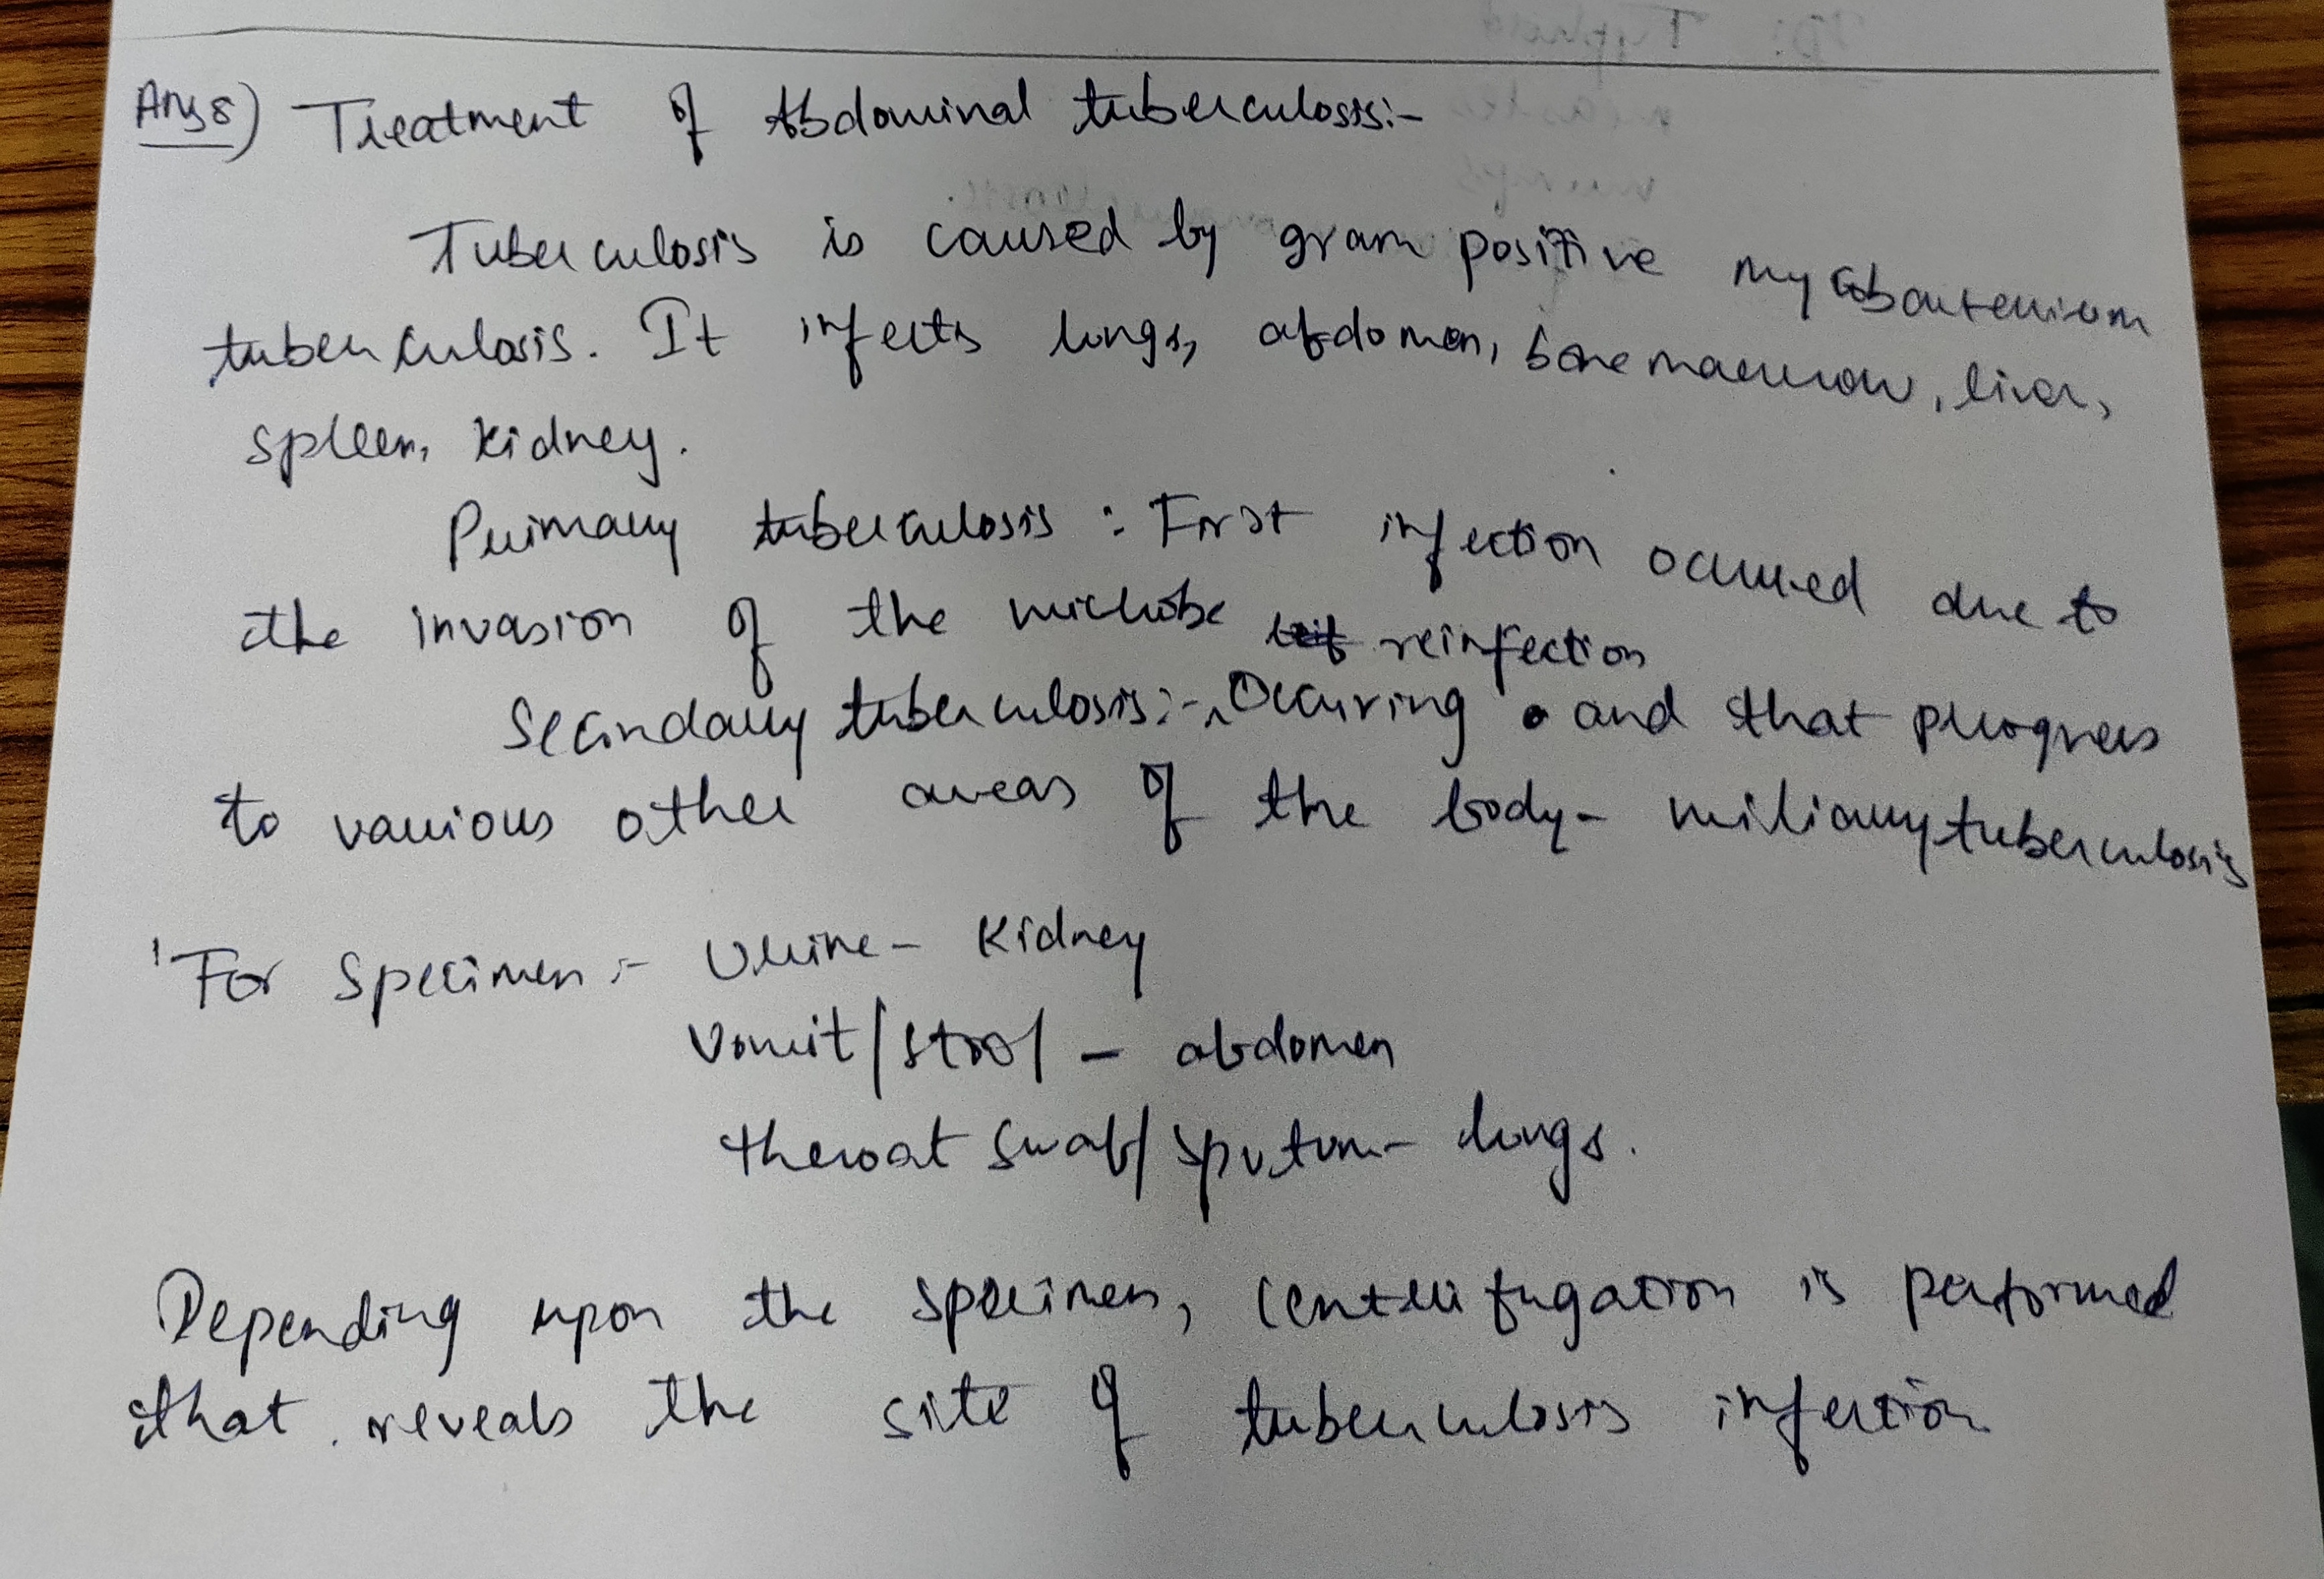 Ans 8) Treatment of Abdominal tuberculosis:-
Tuberculosis is caused by gram positive mycobacterium
tuberculosis. It infects lungs, abdomen, bone marrow, liver,
spleen, kidney.
Primary tuberculosis : First infection occurred due to
the invasion of the microbe
reinfection
Secondary tuberculosis:- Occuring and that progress
to various other areas of the body - miliary tuberculosis
For specimen :- Urine - Kidney
Vomit/stool - abdomen
throat swab/sputum - lungs.
Depending upon the specimen, centrifugation is performed
that reveals the site of tuberculosis infection